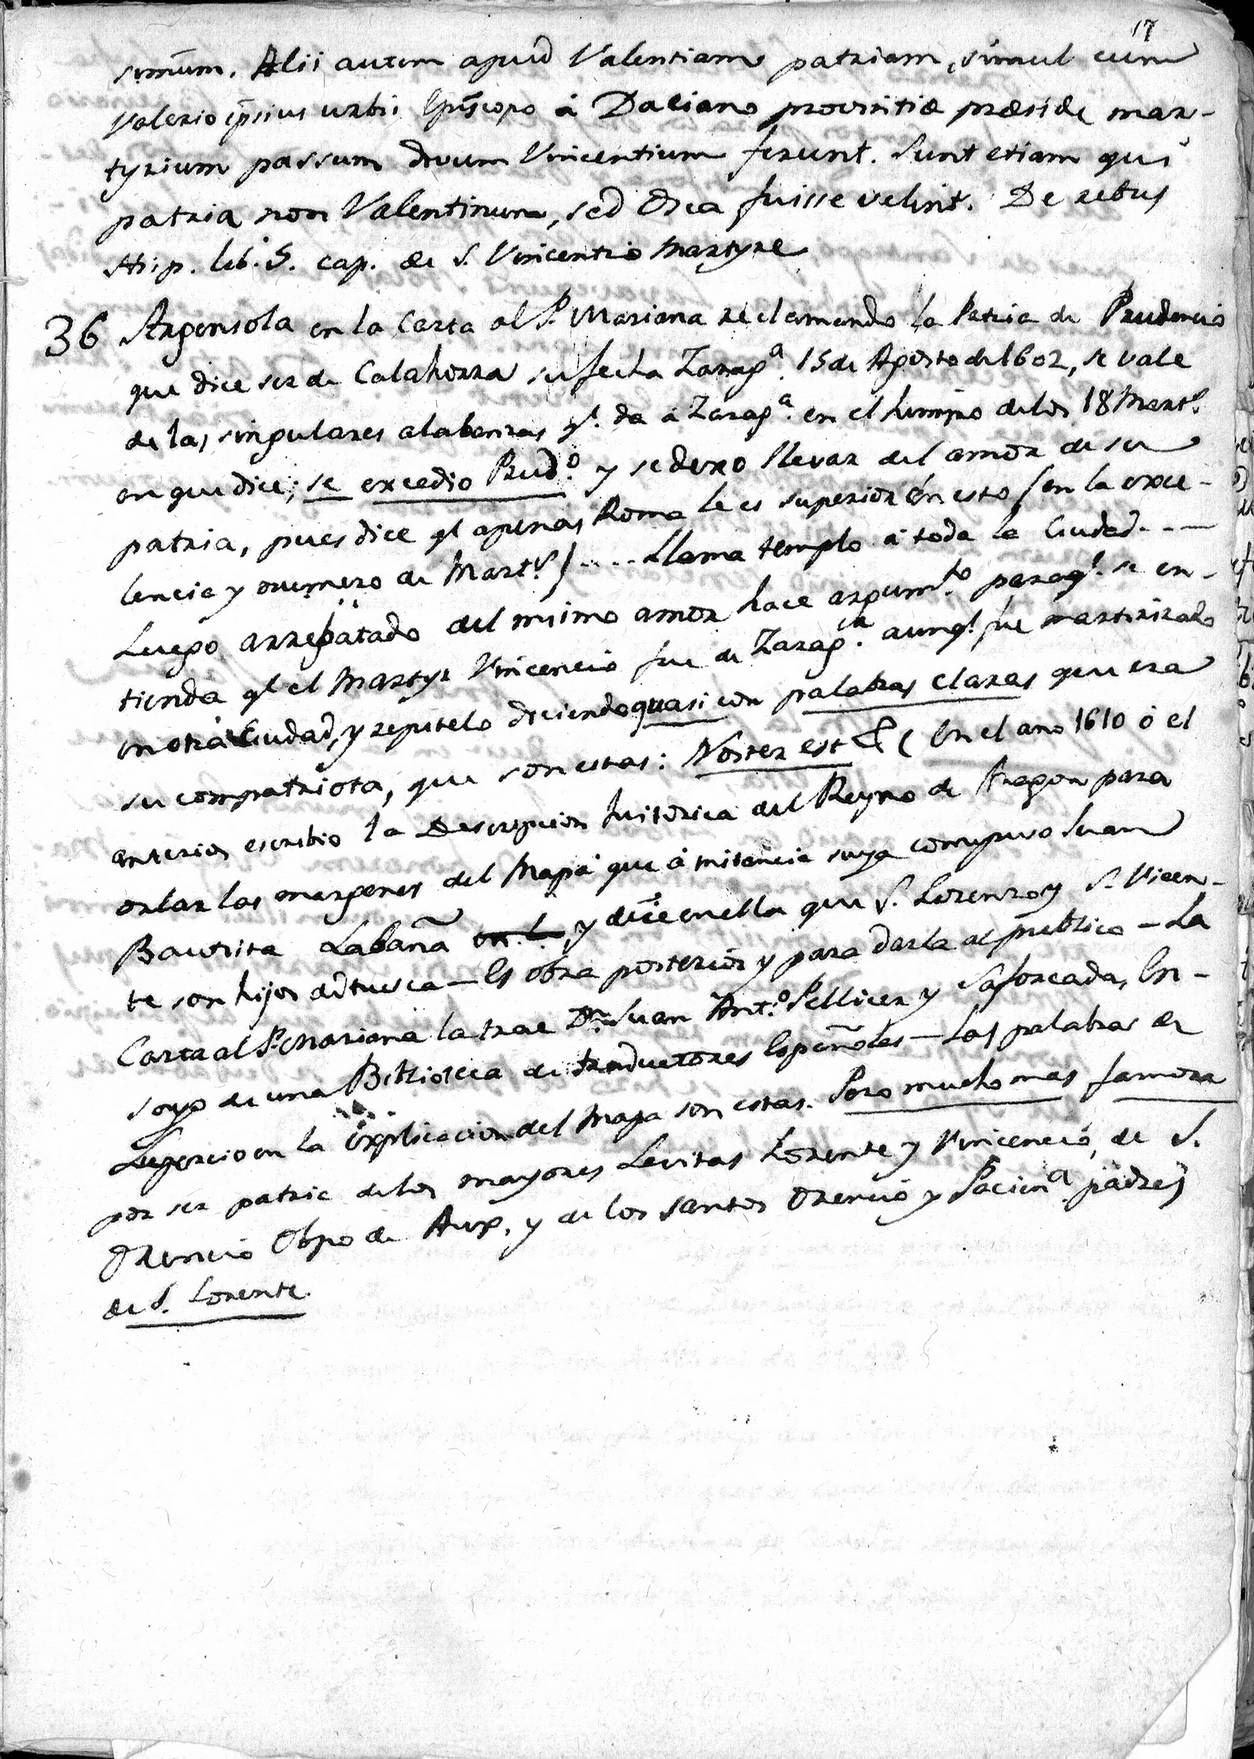 17
simum. Alii autem apud Valentiam patriam, simul cum
Valerio ipsius urbis Epīscopo á Daciano provinitiæ præside mar-
tyrium passum divum Vincentium ferunt. Sunt etiam qui
patria non Valentinum, sed Osca fuisse velint. De rebus
Hisp. lib. 5. cap. de S. Vincentio Martyre
36 Argensola en la Carta al P. Mariana reclamando la Patria de Prudencio
que dice ser de Calahorra su fecha Zaragª. 15 de Agosto de 1602, se vale
de las singulares alabanzas q.ͤ da á Zaragª. en el himno de los 18 Mart.ˢ
en que dice; se excedio Prud.º y se dexo llevar del amor de su
patria, pues dice q.ͤ apenas Roma le es superior en esto (en la exce-
lencia y numero de Mart.ˢ) .... Llama templo á toda la Ciudad ---
Luego arrebatado del mismo amor hace argum.ᵗᵒ para q.ͤ se en-
tienda q.ͤ el Martyr Vincencio fue de Zarag.ª aunq.ͤ fue martirizado
en otra Ciudad, y repitelo diciendo quasi con palabras claras que era
su compatriota, que son estas: Noster est &c (En el ano 1610 ó el
anterior escribio la Descripcion historica del Reyno de Aragon para
orlar las margenes del Mapa que á instancia suya compuso Juan
Bautista Labaña, y dice en ella que S. Lorenzo y S. Vicen-
te son hijos de Huesca — Es obra posterior y para darla al publico — La
Carta al P. Mariana la trae Dn. Juan Ant.º Pellicer y Saforcada, En-
sayo de una Biblioteca de traductores Españoles — Las palabras de
Lupercio en la Explicacion del Mapa son estas. Pero mucho mas famosa
por ser patria de los mayores Levitas Lorente y Vincencio, de S.
Orencio Obpo de Aux, y de los santos Orencio y Pacien.ª padres
de S. Lorente.